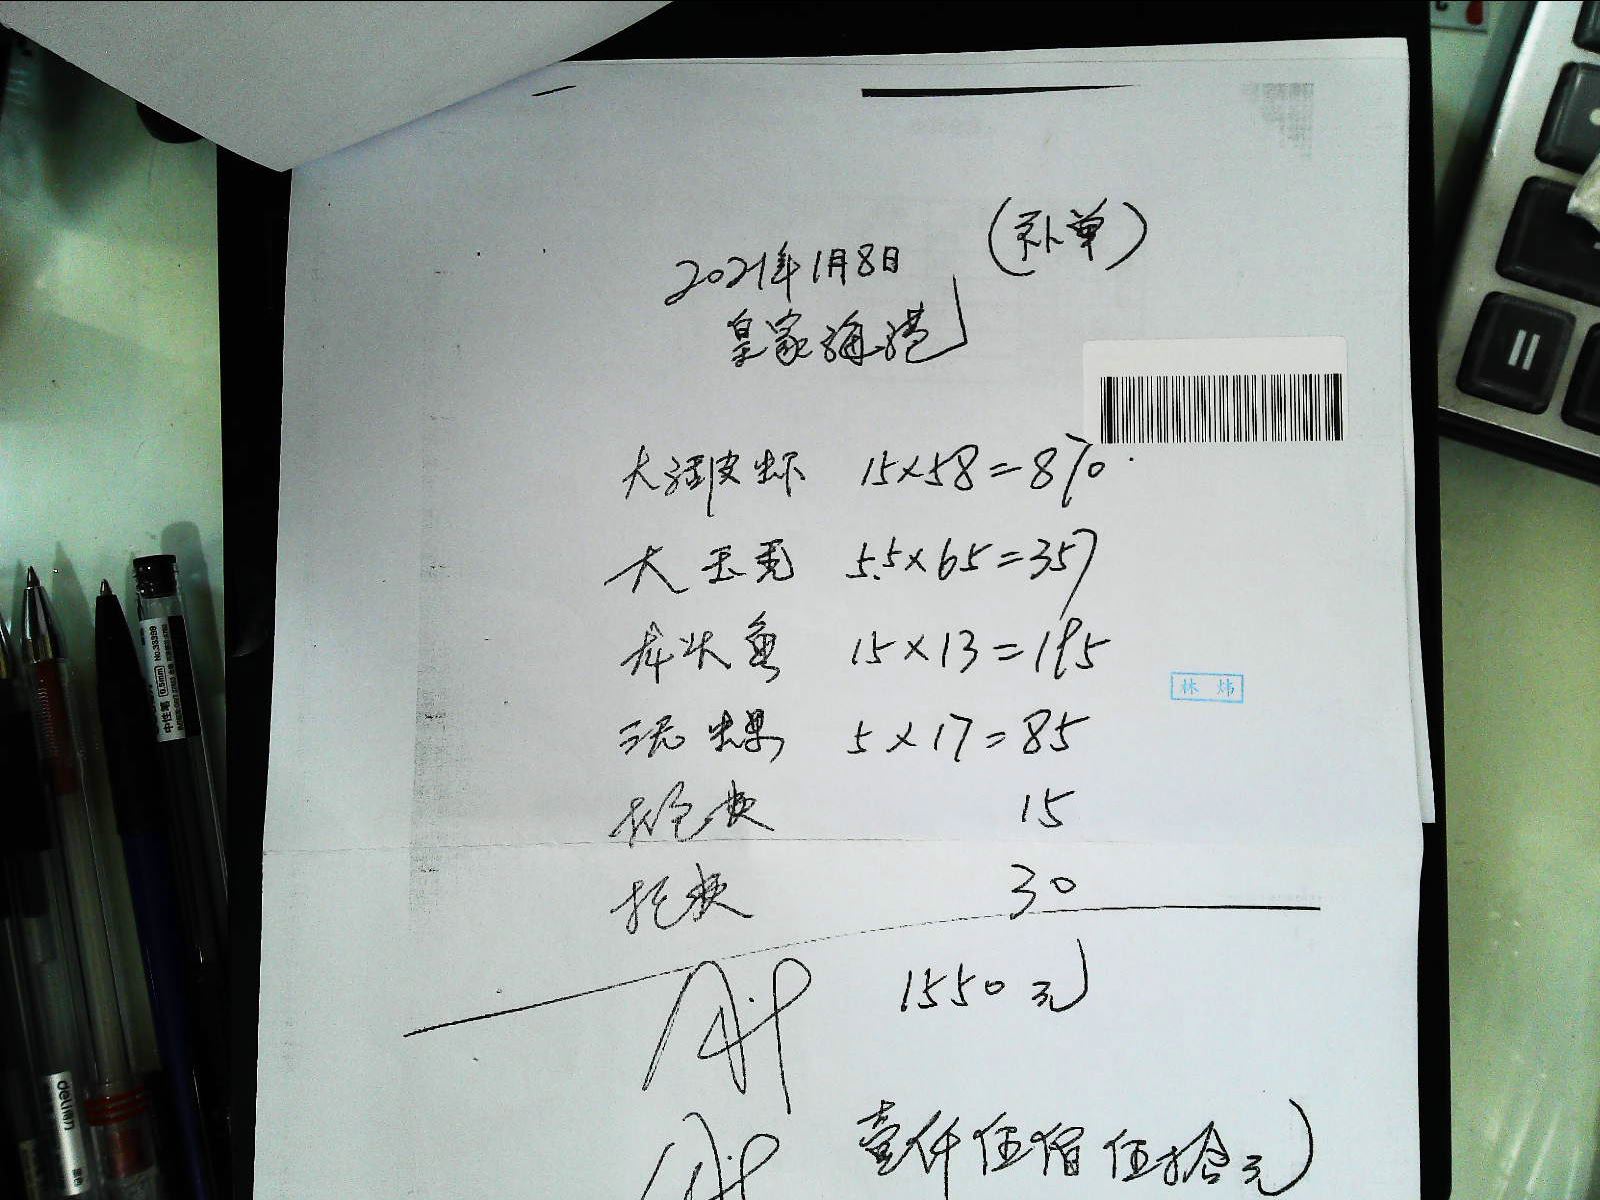 (补单)
2021年1月8日
皇家海港
大深皮虾 15×58=870
大玉秃 5.5×65=357
龙头鱼 15×13=195
林炜
泥螺 5×17=85
抢来 15
托来 30
1550元
壹仟伍佰伍拾元
0.5mm No.38399
中性笔
deli